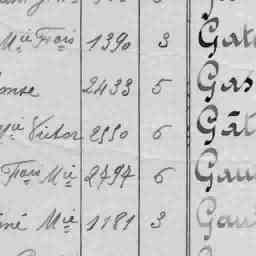 Mie Frois 1390 3 Gat
onse 2433 5 Gas
Mie Victor 2550 6 Gât
Frois Mie 2797 6 Gau
né Mie 1181 3 Gau